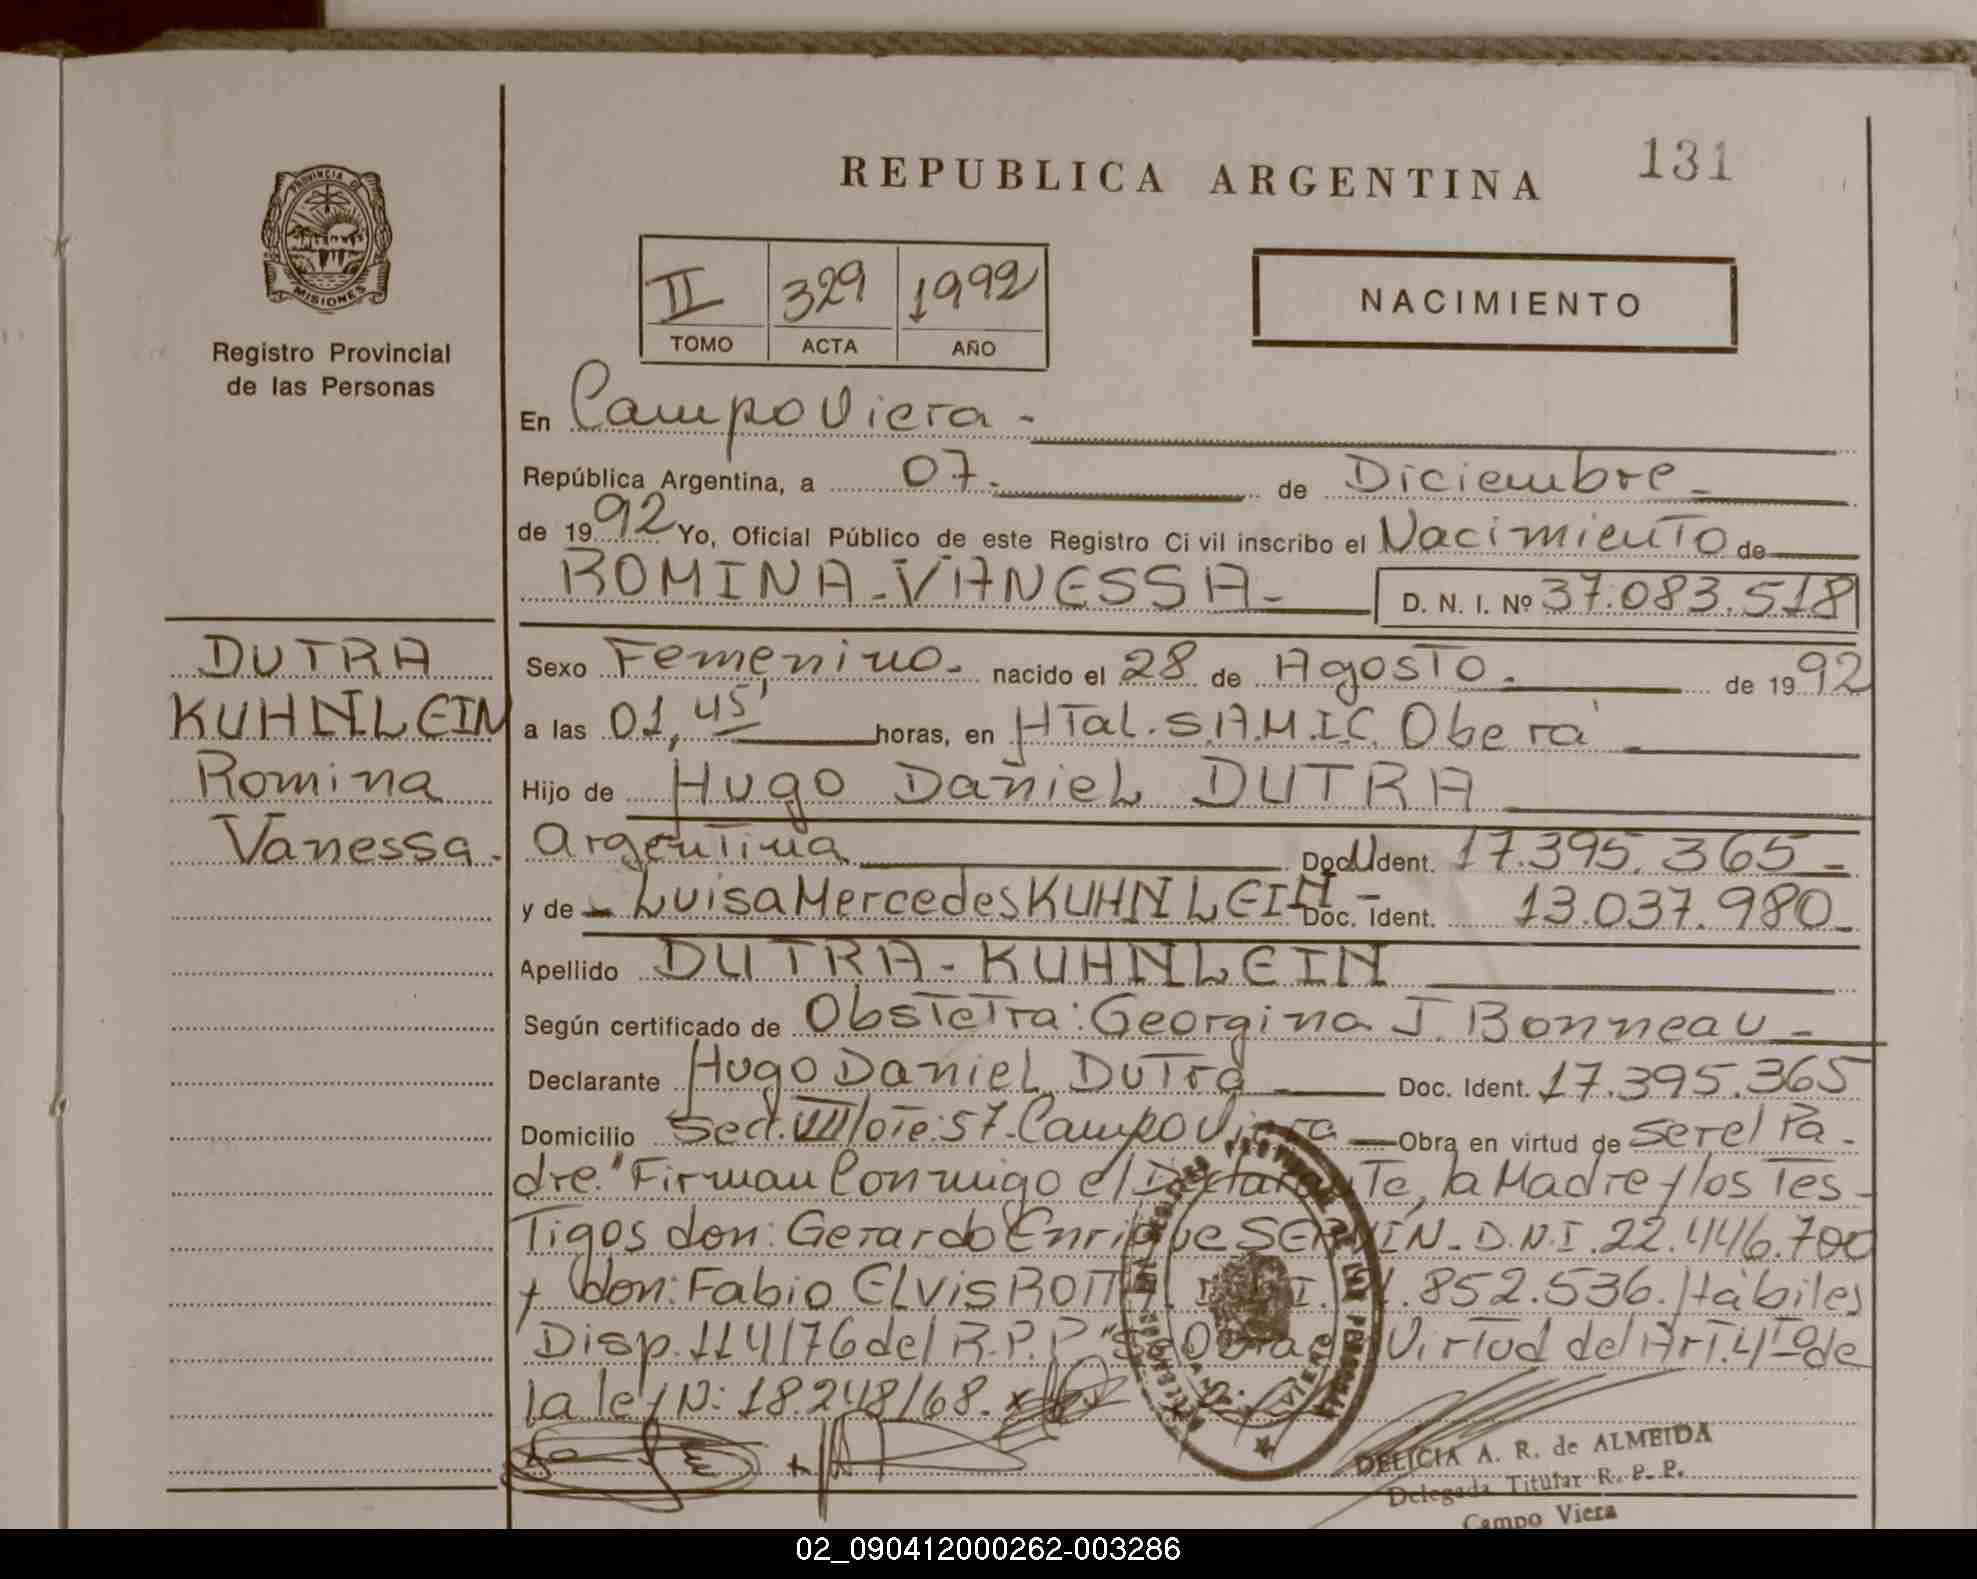 REPUBLICA ARGENTINA
131
PROVINCIA DE
MISIONES
Registro Provincial
de las Personas
II 329 1992
TOMO ACTA AÑO
NACIMIENTO
En Campo Viera -
República Argentina, a 07.- de Diciembre -
de 1992 Yo, Oficial Público de este Registro Ci vil inscribo el Nacimiento de
ROMINA-VANESSA- D. N. I. Nº 37.083.518
DUTRA
KUHNLEIN
Romina
Vanessa.
Sexo Femenino.- nacido el 28 de Agosto. de 1992
a las 01,45' horas, en HTal. S.A.M.I.C. Oberá
Hijo de Hugo Daniel DUTRA
Argentina Doc. Ident. 17.395.365-
y de - Luisa Mercedes KUHNLEIN - Doc. Ident. 13.037.980-
Apellido DUTRA-KUHNLEIN
Según certificado de Obstetra: Georgina J. Bonneau -
Declarante Hugo Daniel DuTra Doc. Ident. 17.395.365
Domicilio Sec. VIII lote: 57-Campo Viera Obra en virtud de ser el Pa-
dre." Firman Conmigo el Declarante, la Madre y los Tes-
Tigos don: Gerardo Enrique SERVIN- D.N.I. 22.446.700
y don: Fabio Elvis .852.536. Hábiles
Disp. 114/76 del R.P.P. "Se Obra Virtud del Art. 4to de
la ley N: 18.248/68.
DELICIA A. R. de ALMEIDA
Delegada Titular R. P. P.
Campo Viera
02_090412000262-003286